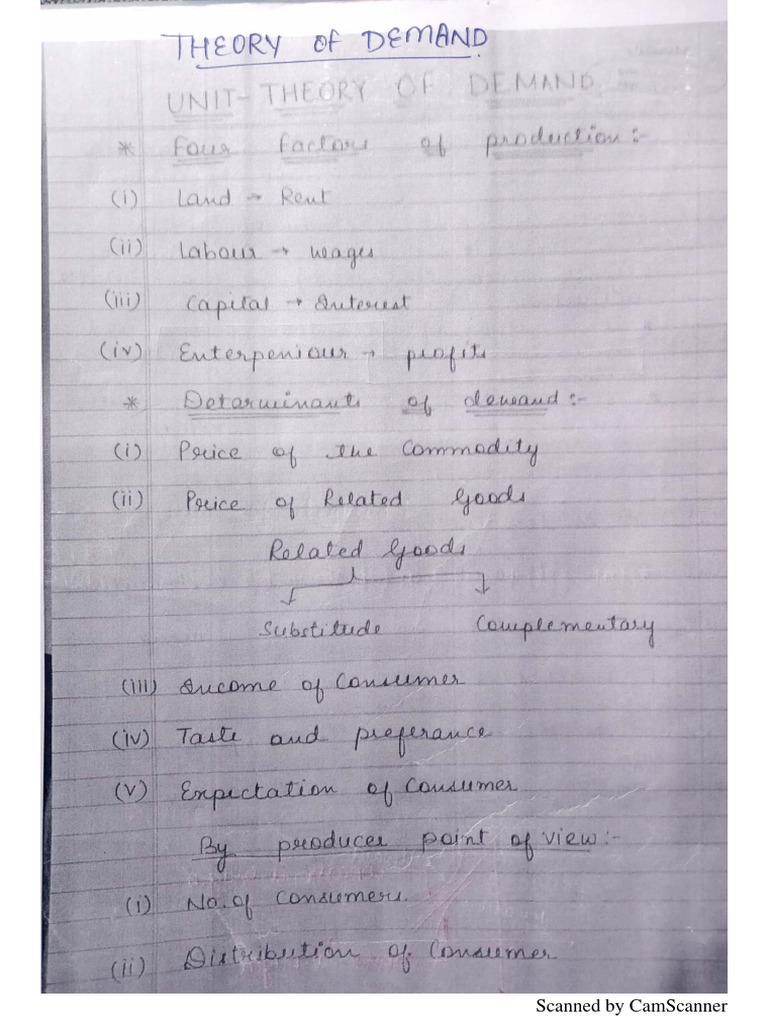 THEORY OF DEMAND
UNIT- THEORY OF DEMAND
* Four factors of production:-
(i) Land → Rent
(ii) Labour → wages
(iii) Capital → Interest
(iv) Enterpeniour → profits
* Determinants of demand:-
(i) Price of the Commodity
(ii) Price of Related Goods
Related Goods
Substitude Complementary
(iii) Income of Consumer
(iv) Taste and preferance
(v) Expectation of Consumer
By producer point of view:-
(i) No. of Consumers.
(ii) Distribution of Consumer
Scanned by CamScanner